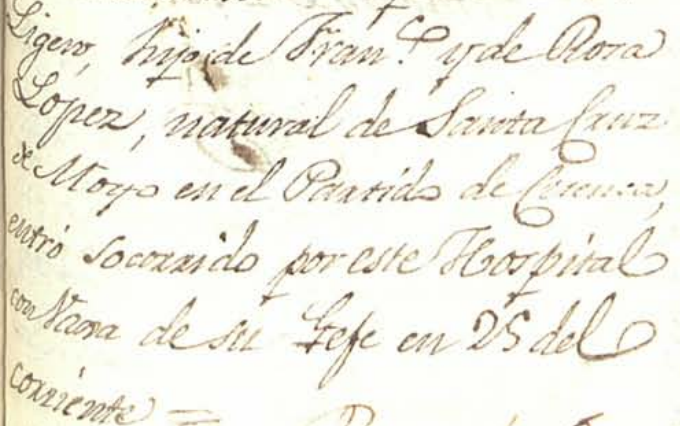 Ligero, hijo de Fran.co y de Rosa
Lopez, natural de Santa Cruz
de Moya en el Partido de Cuenca,
entró socorrido por este Hospital
con de su Gefe en 25 del
corriente =